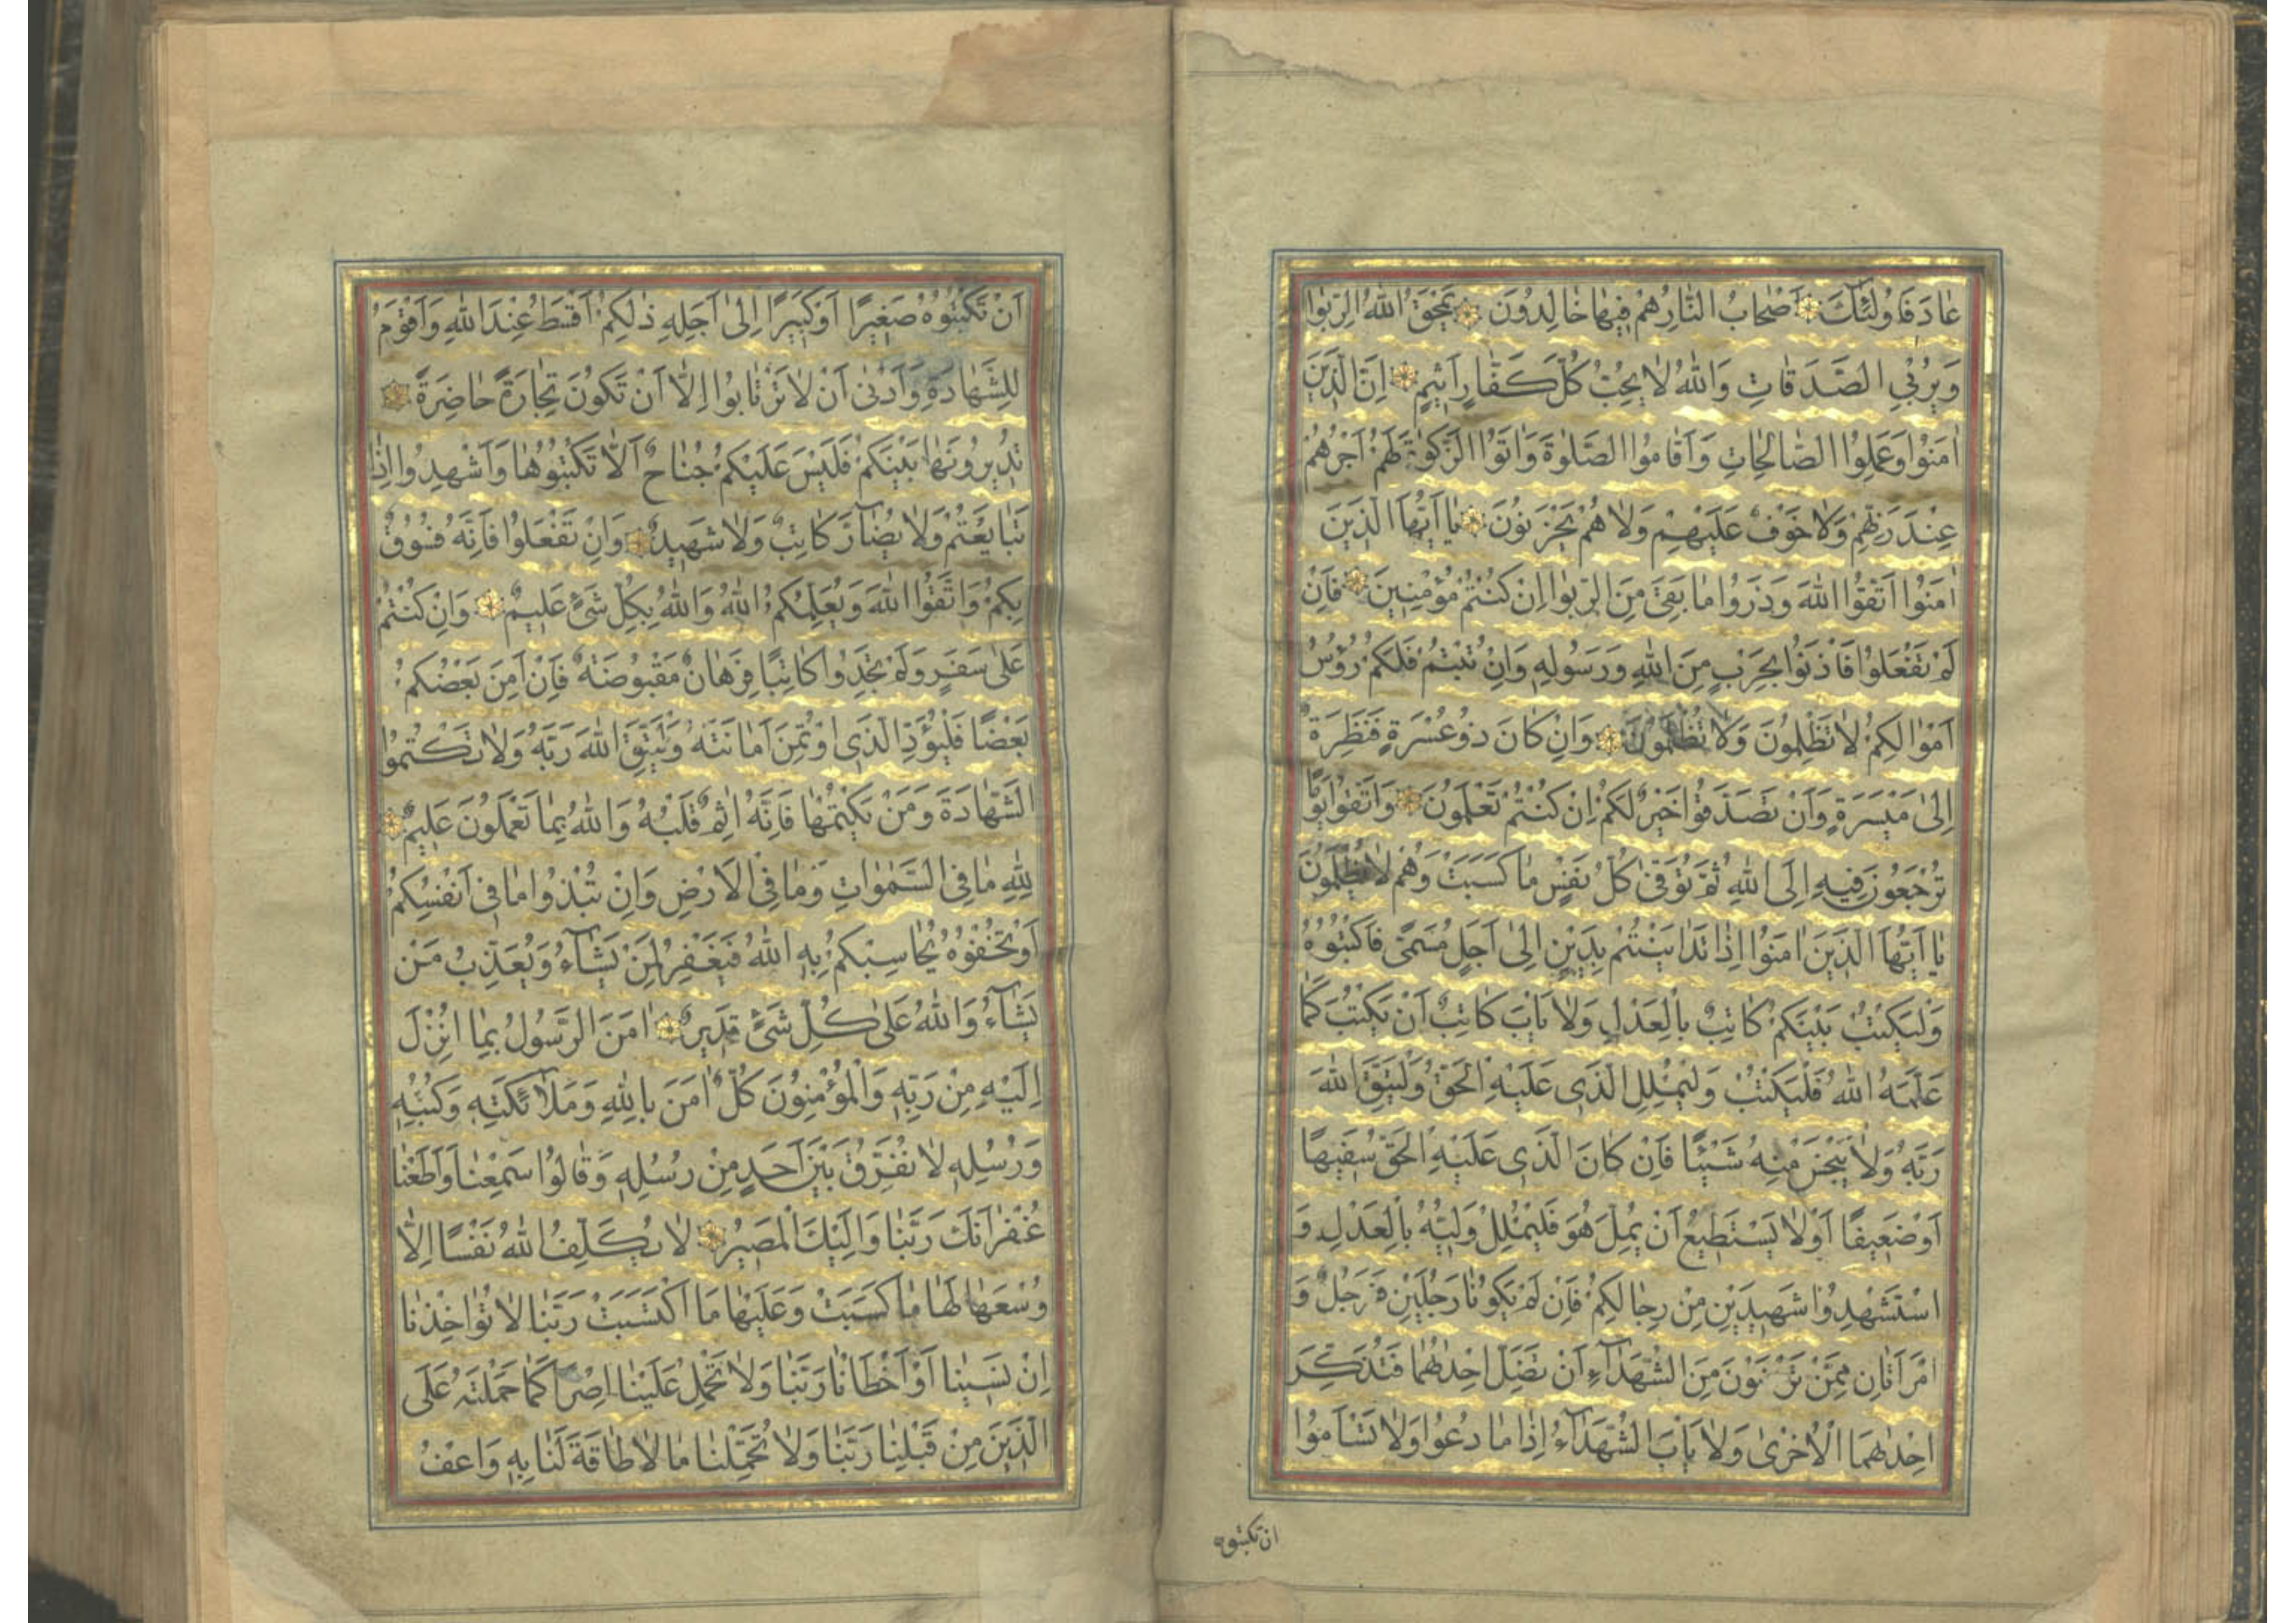 عَادَ فَاُولٰئِكَ اَصْحَابُ النَّارِ هُمْ فِيهَا خَالِدُونَ يَمْحَقُ اللّٰهُ الرِّبٰوا
وَيُرْبِي الصَّدَقَاتِ وَاللّٰهُ لَا يُحِبُّ كُلَّ كَفَّارٍ اَثِيمٍ اِنَّ الَّذِينَ
اٰمَنُوا وَعَمِلُوا الصَّالِحَاتِ وَاَقَامُوا الصَّلٰوةَ وَاٰتَوُا الزَّكٰوةَ لَهُمْ اَجْرُهُمْ
عِنْدَ رَبِّهِمْ وَلَا خَوْفٌ عَلَيْهِمْ وَلَا هُمْ يَحْزَنُونَ يَا اَيُّهَا الَّذِينَ
اٰمَنُوا اتَّقُوا اللّٰهَ وَذَرُوا مَا بَقِيَ مِنَ الرِّبٰوا اِنْ كُنْتُمْ مُؤْمِنِينَ فَاِنْ
لَمْ تَفْعَلُوا فَأْذَنُوا بِحَرْبٍ مِنَ اللّٰهِ وَرَسُولِهِ وَاِنْ تُبْتُمْ فَلَكُمْ رُؤُسُ
اَمْوَالِكُمْ لَا تَظْلِمُونَ وَلَا تُظْلَمُونَ وَاِنْ كَانَ ذُو عُسْرَةٍ فَنَظِرَةٌ
اِلٰى مَيْسَرَةٍ وَاَنْ تَصَدَّقُوا خَيْرٌ لَكُمْ اِنْ كُنْتُمْ تَعْلَمُونَ وَاتَّقُوا يَوْمًا
تُرْجَعُونَ فِيهِ اِلَى اللّٰهِ ثُمَّ تُوَفّٰى كُلُّ نَفْسٍ مَا كَسَبَتْ وَهُمْ لَا يُظْلَمُونَ
يَا اَيُّهَا الَّذِينَ اٰمَنُوا اِذَا تَدَايَنْتُمْ بِدَيْنٍ اِلٰى اَجَلٍ مُسَمًّى فَاكْتُبُوهُ
وَلْيَكْتُبْ بَيْنَكُمْ كَاتِبٌ بِالْعَدْلِ وَلَا يَأْبَ كَاتِبٌ اَنْ يَكْتُبَ كَمَا
عَلَّمَهُ اللّٰهُ فَلْيَكْتُبْ وَلْيُمْلِلِ الَّذِي عَلَيْهِ الْحَقُّ وَلْيَتَّقِ اللّٰهَ
رَبَّهُ وَلَا يَبْخَسْ مِنْهُ شَيْئًا فَاِنْ كَانَ الَّذِي عَلَيْهِ الْحَقُّ سَفِيهًا
اَوْ ضَعِيفًا اَوْ لَا يَسْتَطِيعُ اَنْ يُمِلَّ هُوَ فَلْيُمْلِلْ وَلِيُّهُ بِالْعَدْلِ وَ
اسْتَشْهِدُوا شَهِيدَيْنِ مِنْ رِجَالِكُمْ فَاِنْ لَمْ يَكُونَا رَجُلَيْنِ فَرَجُلٌ وَ
امْرَاَتَانِ مِمَّنْ تَرْضَوْنَ مِنَ الشُّهَدَآءِ اَنْ تَضِلَّ اِحْدٰيهُمَا فَتُذَكِّرَ
اِحْدٰيهُمَا الْاُخْرٰى وَلَا يَأْبَ الشُّهَدَآءُ اِذَا مَا دُعُوا وَلَا تَسْاَمُوا
ان تكتبوه
اَنْ تَكْتُبُوهُ صَغِيرًا اَوْ كَبِيرًا اِلٰى اَجَلِهِ ذٰلِكُمْ اَقْسَطُ عِنْدَ اللّٰهِ وَاَقْوَمُ
لِلشَّهَادَةِ وَاَدْنٰى اَنْ لَا تَرْتَابُوا اِلَّا اَنْ تَكُونَ تِجَارَةً حَاضِرَةً
تُدِيرُونَهَا بَيْنَكُمْ فَلَيْسَ عَلَيْكُمْ جُنَاحٌ اَلَّا تَكْتُبُوهَا وَاَشْهِدُوا اِذَا
تَبَايَعْتُمْ وَلَا يُضَآرَّ كَاتِبٌ وَلَا شَهِيدٌ وَاِنْ تَفْعَلُوا فَاِنَّهُ فُسُوقٌ
بِكُمْ وَاتَّقُوا اللّٰهَ وَيُعَلِّمُكُمُ اللّٰهُ وَاللّٰهُ بِكُلِّ شَيْءٍ عَلِيمٌ وَاِنْ كُنْتُمْ
عَلٰى سَفَرٍ وَلَمْ تَجِدُوا كَاتِبًا فَرِهَانٌ مَقْبُوضَةٌ فَاِنْ اَمِنَ بَعْضُكُمْ
بَعْضًا فَلْيُؤَدِّ الَّذِي اؤْتُمِنَ اَمَانَتَهُ وَلْيَتَّقِ اللّٰهَ رَبَّهُ وَلَا تَكْتُمُوا
الشَّهَادَةَ وَمَنْ يَكْتُمْهَا فَاِنَّهُ اٰثِمٌ قَلْبُهُ وَاللّٰهُ بِمَا تَعْمَلُونَ عَلِيمٌ
لِلّٰهِ مَا فِي السَّمٰوَاتِ وَمَا فِي الْاَرْضِ وَاِنْ تُبْدُوا مَا فِي اَنْفُسِكُمْ
اَوْ تُخْفُوهُ يُحَاسِبْكُمْ بِهِ اللّٰهُ فَيَغْفِرُ لِمَنْ يَشَآءُ وَيُعَذِّبُ مَنْ
يَشَآءُ وَاللّٰهُ عَلٰى كُلِّ شَيْءٍ قَدِيرٌ اٰمَنَ الرَّسُولُ بِمَا اُنْزِلَ
اِلَيْهِ مِنْ رَبِّهِ وَالْمُؤْمِنُونَ كُلٌّ اٰمَنَ بِاللّٰهِ وَمَلٰٓئِكَتِهِ وَكُتُبِهِ
وَرُسُلِهِ لَا نُفَرِّقُ بَيْنَ اَحَدٍ مِنْ رُسُلِهِ وَقَالُوا سَمِعْنَا وَاَطَعْنَا
غُفْرَانَكَ رَبَّنَا وَاِلَيْكَ الْمَصِيرُ لَا يُكَلِّفُ اللّٰهُ نَفْسًا اِلَّا
وُسْعَهَا لَهَا مَا كَسَبَتْ وَعَلَيْهَا مَا اكْتَسَبَتْ رَبَّنَا لَا تُؤَاخِذْنَا
اِنْ نَسِينَا اَوْ اَخْطَاْنَا رَبَّنَا وَلَا تَحْمِلْ عَلَيْنَا اِصْرًا كَمَا حَمَلْتَهُ عَلَى
الَّذِينَ مِنْ قَبْلِنَا رَبَّنَا وَلَا تُحَمِّلْنَا مَا لَا طَاقَةَ لَنَا بِهِ وَاعْفُ